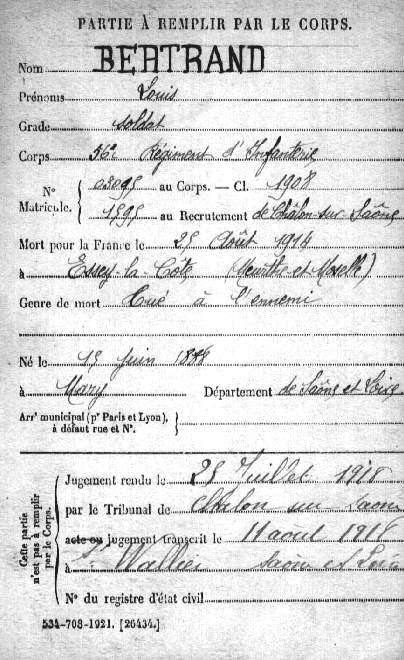 PARTIE À REMPLIR PAR LE CORPS.
Nom BERTRAND
Prénoms Louis
Grade soldat
Corps 56e Régiment d'Infanterie
N° Matricule. { au Corps. — Cl. 1908
1595 au Recrutement de Châlon-sur-Saône
Mort pour la France le 25 Août 1914
à Essey-la-Côte (Meurthe-et-Moselle)
Genre de mort Tué à l'ennemi
Né le 15 Juin
à Mary Département de Saône et Loire
Arrt municipal (pr Paris et Lyon), à défaut rue et N°. }
Cette partie n'est pas à remplir par le Corps.
Jugement rendu le 25 Juillet 1918
par le Tribunal de Chalon sur Saone
acte ou jugement transcrit le 11 aout 1918
à St Vallier Saone et Loire
N° du registre d'état civil
534-708-1921. [26434.]